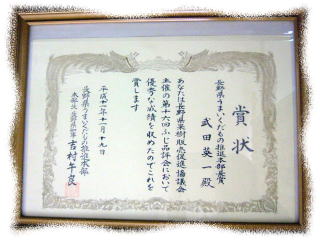 賞状
長野県うまいくだもの推進本部長賞
武田英一殿
あなたは長野県果樹販売促進協議会
主催の第十六回ふじ品評会において
優秀な成績を収めたのでこれを
賞します
平成十一年十一月十九日
長野県うまいくだもの推進本部
本部長 長野県知事 吉村午良